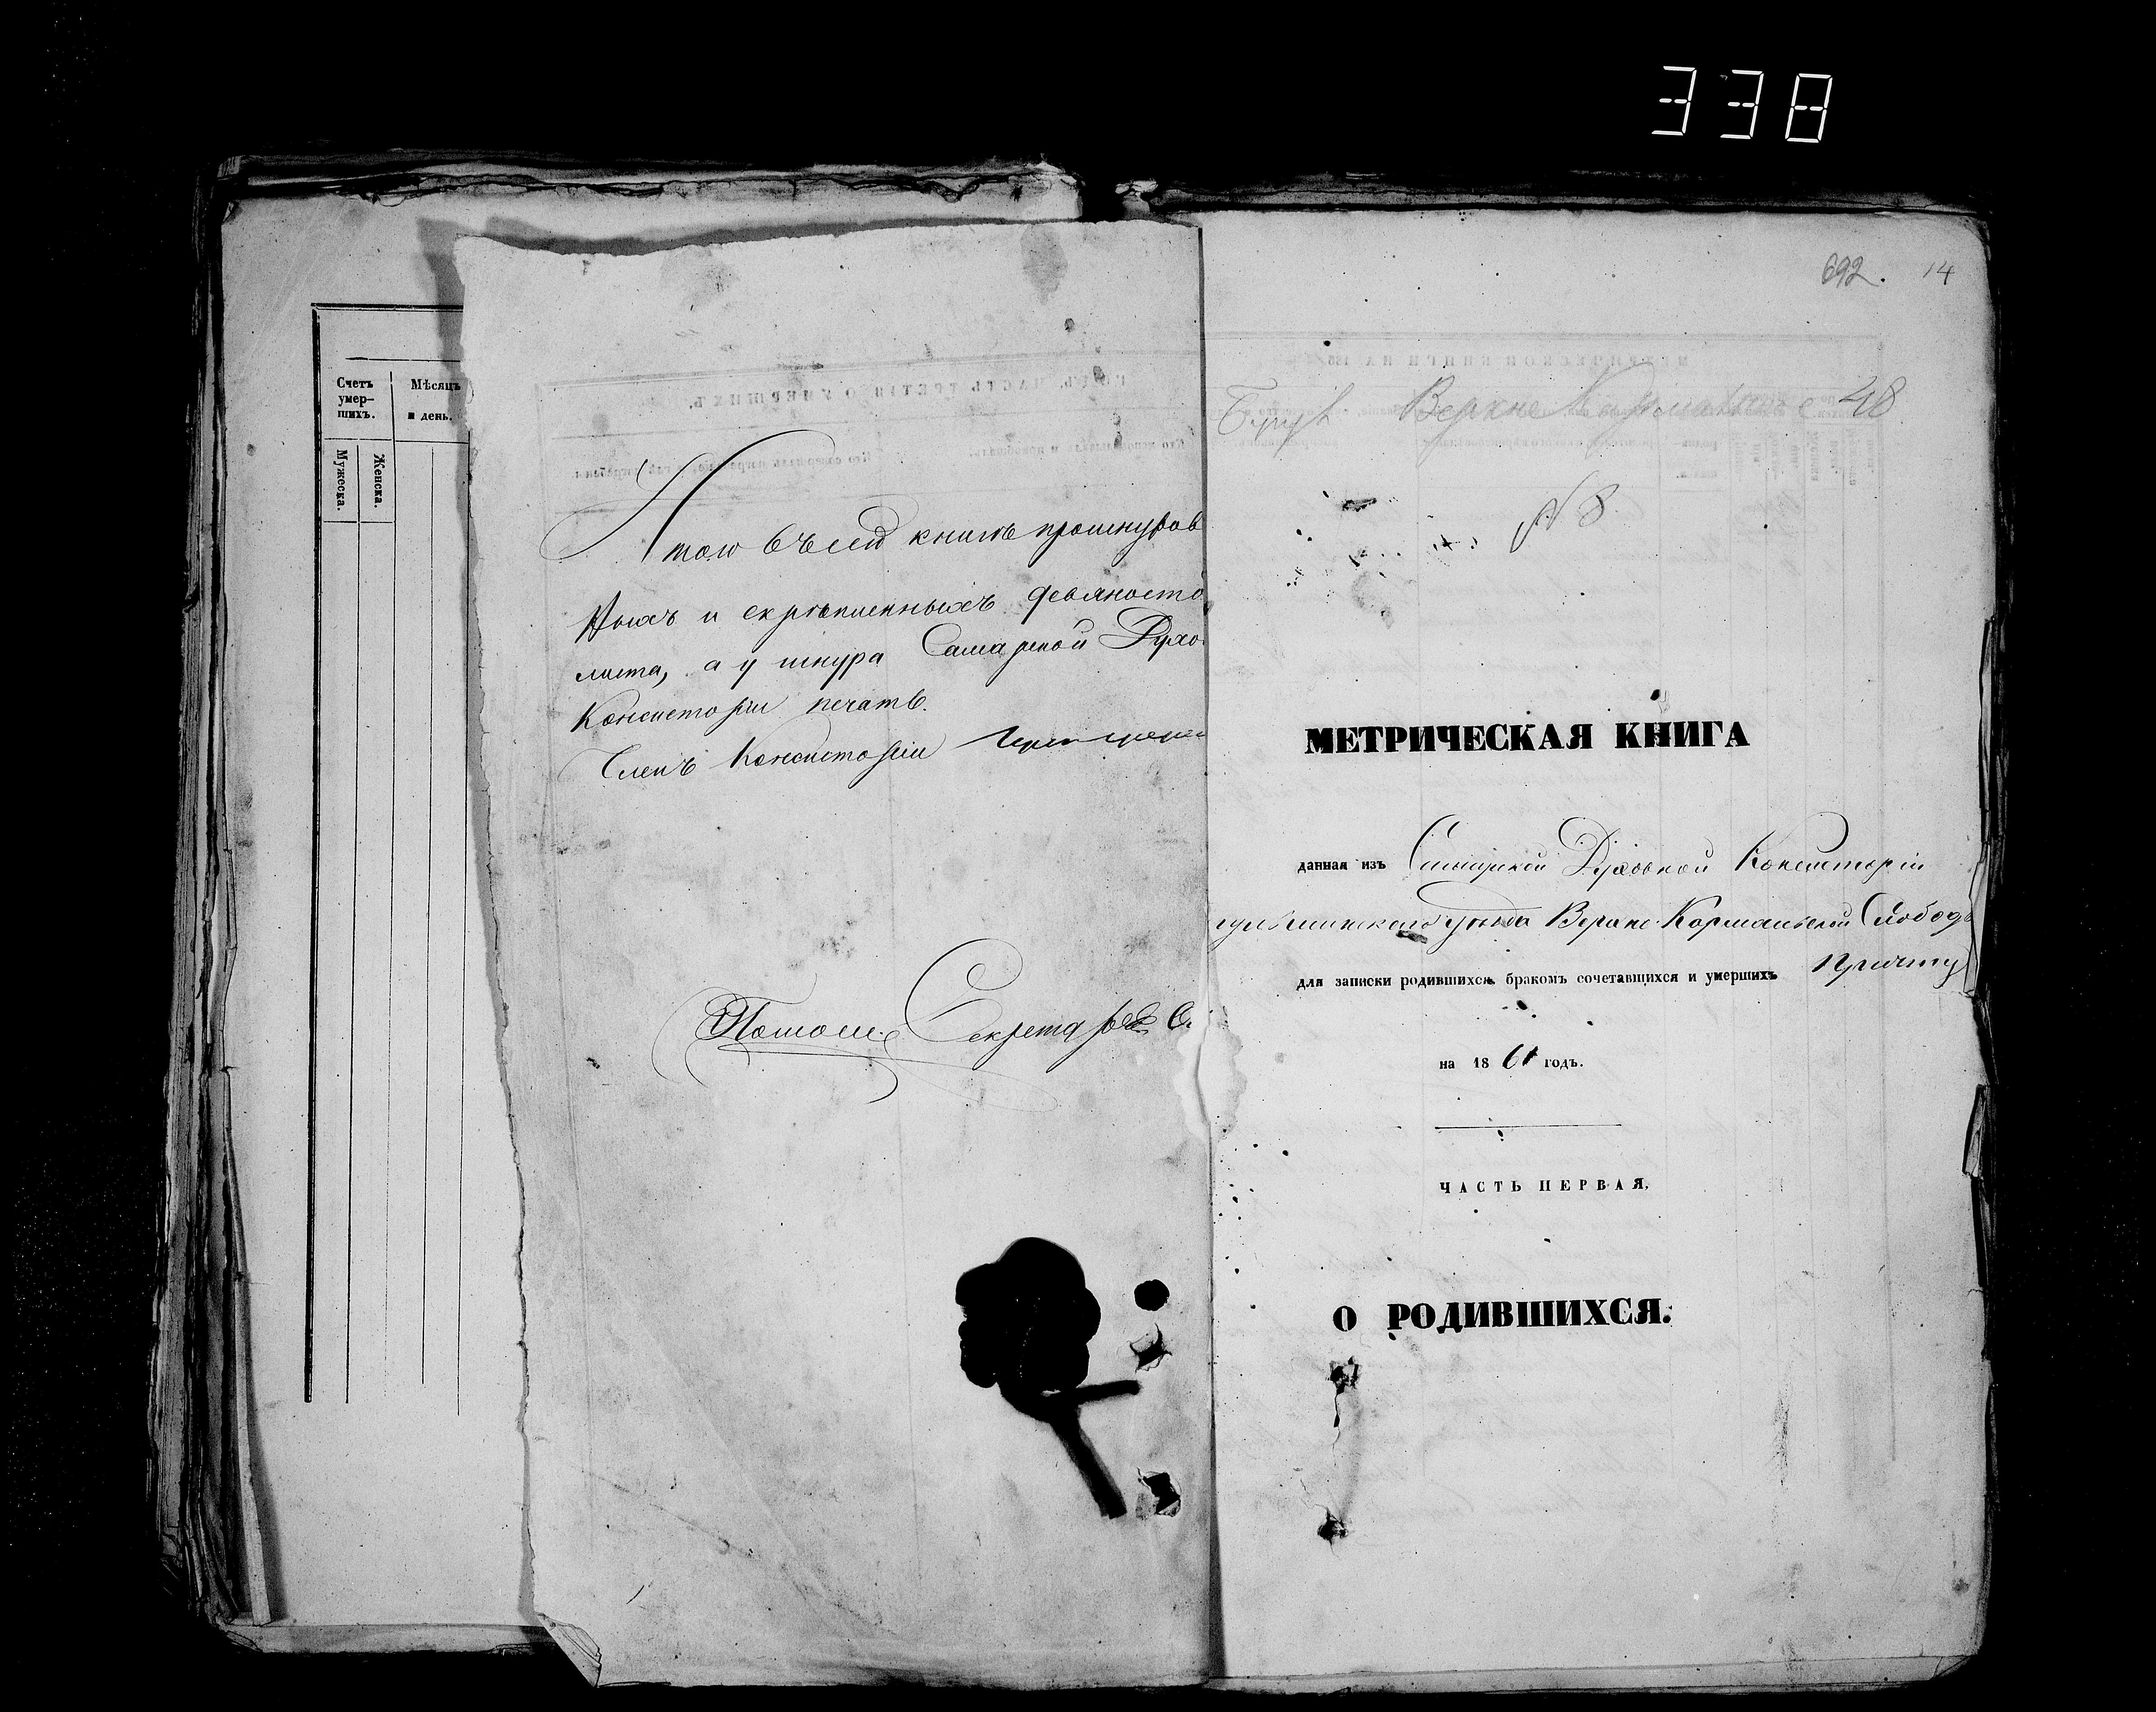 338
692. 14
Счетъ умер-шихъ.
Мѣсяцъ и день.
Мужеска.
Женска.
Итого въ сей книгѣ прошнуров
ныхъ и скрѣпленныхъ девяносто
листа, а у шнура Самарской Духо
Консисторіи печать.
Членъ Консисторіи
Секретарь
Верхне 48
№ 8
МЕТРИЧЕСКАЯ КНИГА
данная изъ Самарской Духовной Консисторіи
уѣзда Верхне Кармальской Слободы
для записки родившихся бракомъ сочетавшихся и умершихъ причту
на 1861 годъ.
ЧАСТЬ ПЕРВАЯ.
О РОДИВШИХСЯ.